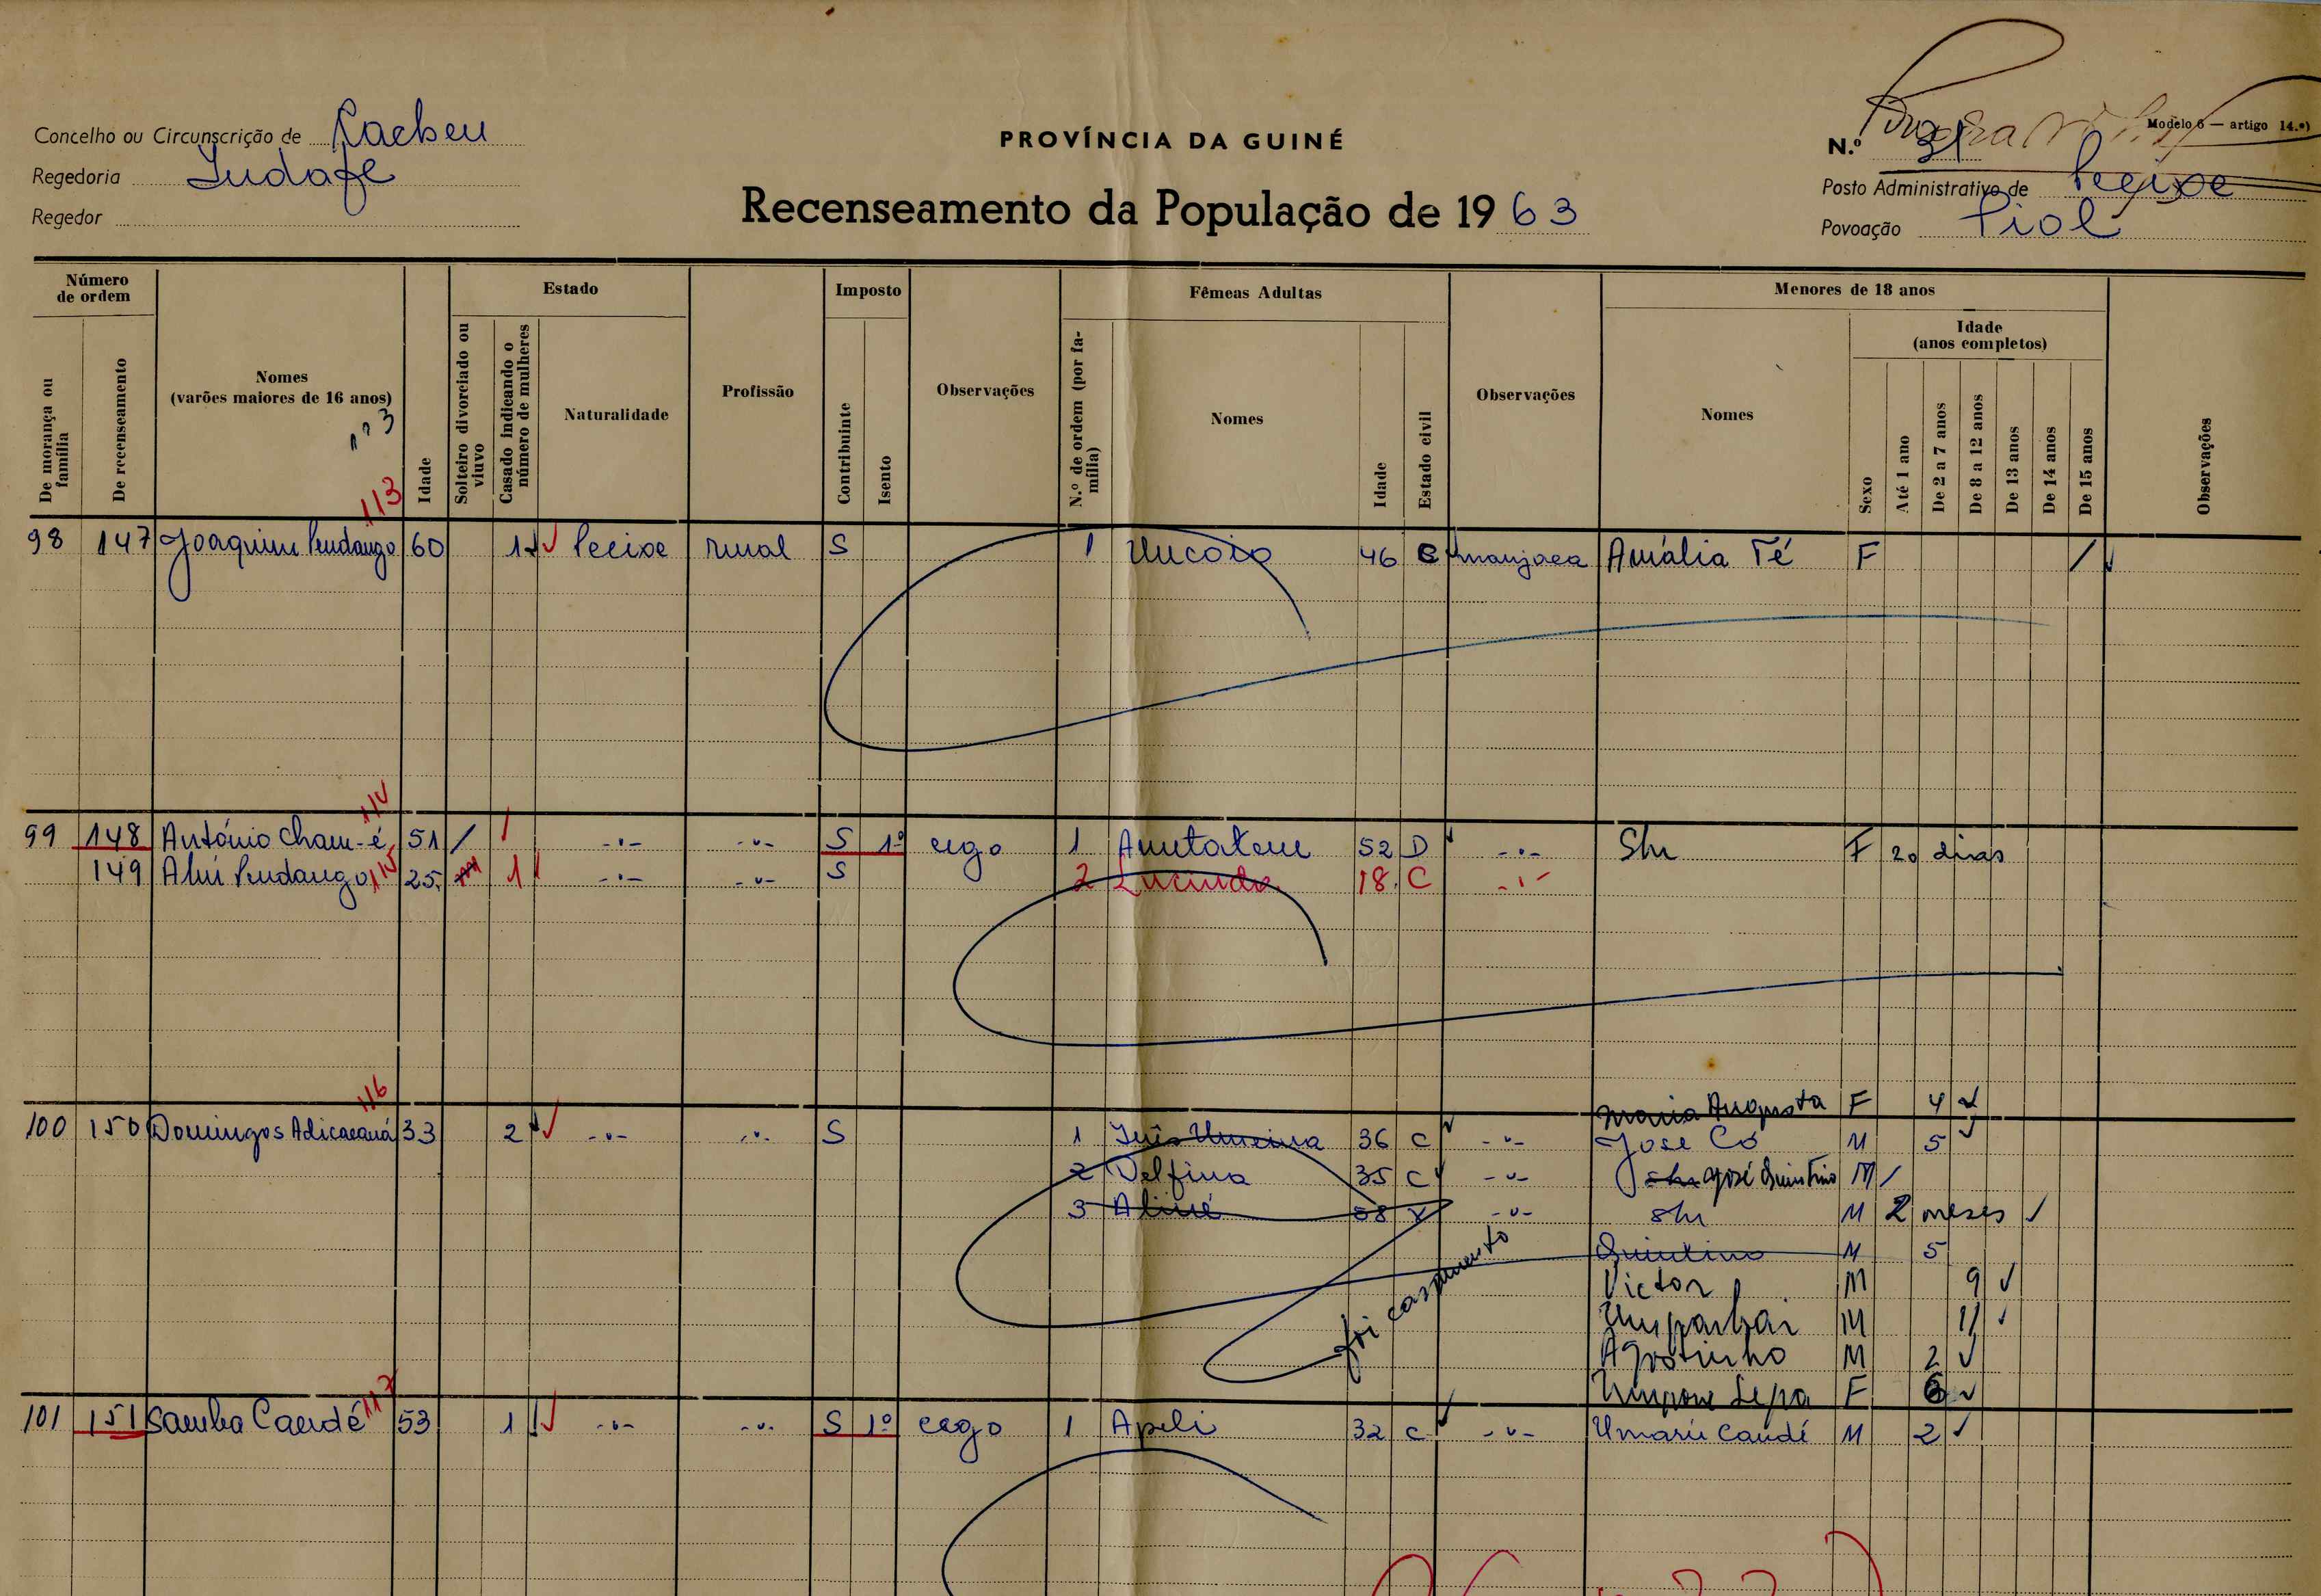 Modelo 6 — artigo 14.º)
Concelho ou Circunscrição de Cacheu
PROVÍNCIA DA GUINÉ
N.º 31
Regedoria Indafe
Posto Administrativo de Pecixe
Regedor
Recenseamento da População de 1963
Povoação Piol
Número de ordem
Estado
Imposto
Fêmeas Adultas
Menores de 18 anos
De morança ou família
De recenseamento
Nomes (varões maiores de 16 anos)
nº 3
Idade
Solteiro divorciado ou viuvo
Casado indicando o número de mulheres
Naturalidade
Profissão
Contribuinte
Isento
Observações
N.º de ordem (por família)
Nomes
Idade
Estado civil
Observações
Nomes
Sexo
Idade (anos completos)
Até 1 ano
De 2 a 7 anos
De 8 a 12 anos
De 13 anos
De 14 anos
De 15 anos
Observações
113
98 147 Joaquim Pendango 60 1 Pecixe rural S 1 Uncoio 46 C manjaca Amália Té F /
114
99 148 António Cham-é 51 / -"- -"- S 1º cego 1 52 D -"- S/n F 20 dias
149 Alui Pendango 115 25 1 -"- -"- S 2 Lucinda 18 C -"-
Maria Augusta F 4
116
100 150 Domingos 33 2 -"- -"- S 1 Inês 36 C -"- José Có M 5
2 Delfina 35 C -"- s/n José Quintino M /
3 58 -"- s/n M 2 meses
Quintino M 5
foi casamento
Victor M 9
M 11
Agostinho M 2
F 6
117
101 151 Samba Candé 53 1 -"- -"- S 1º cego 1 Apeli 32 C -"- Umarú Candé M 2